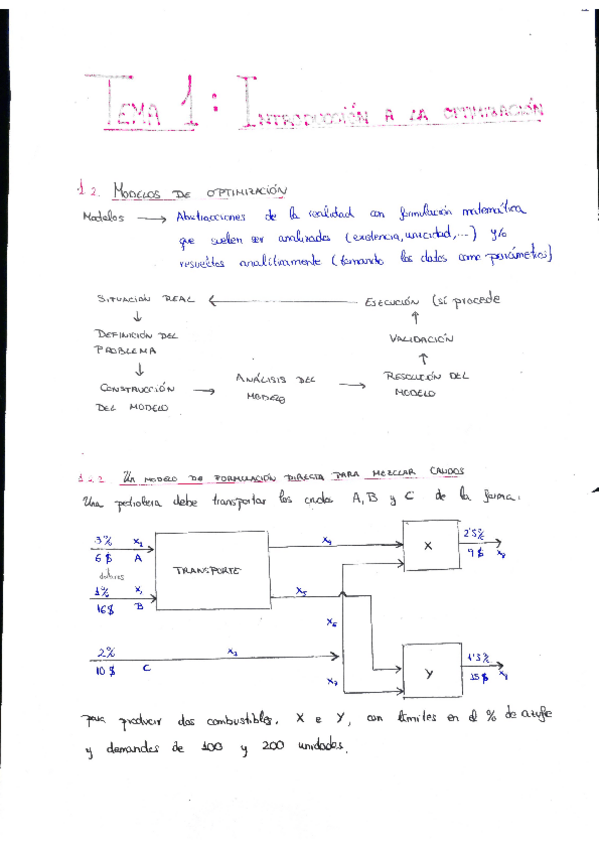 TEMA 1: INTRODUCCIÓN A LA OPTIMIZACIÓN
1.2. MODELOS DE OPTIMIZACIÓN
Modelos → Abstracciones de la realidad con formulación matemática
que suelen ser analizados (existencia, unicidad, ...) y/o
resueltos analíticamente (tomando los datos como parámetros)
SITUACIÓN REAL ← EJECUCIÓN (si procede
↓ ↑
DEFINICIÓN DEL VALIDACIÓN
PROBLEMA
↓ ↑
CONSTRUCCIÓN → ANÁLISIS DEL → RESOLUCIÓN DEL
DEL MODELO MODELO MODELO
1.2.2 UN MODELO DE FORMULACIÓN DIRECTA PARA MEZCLAR CRUDOS
Una petrolera debe transportar los crudos A, B y C de la forma:
3% x₁
6$ A
dólares
1%
16$ B
TRANSPORTE
x₄
x₅
x₆
x₇
2%
10$ C
X
2'5%
9$
Y
1'5%
15$
para producir dos combustibles, X e Y, con límites en el % de azufre
y demandas de 100 y 200 unidades.